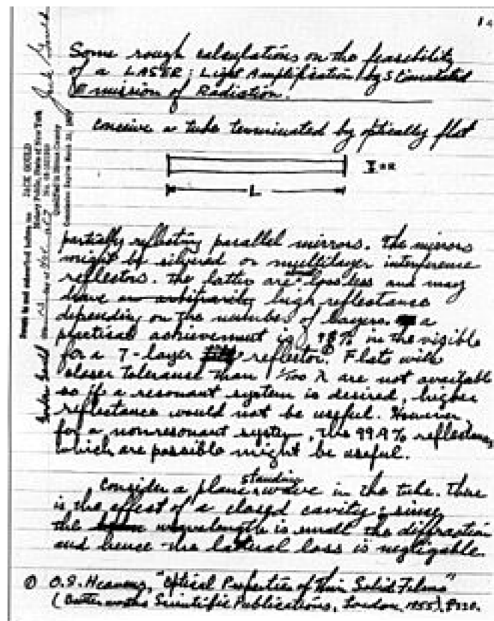 Some rough calculations on the feasibility
of a LASER: Light Amplification by Stimulated
Emission of Radiation.
conceive a tube terminated by optically flat
L
partially reflecting parallel mirrors. The mirrors
might be silvered or multilayer interference
reflectors. The latter are almost lossless and may
have an arbitrarily high reflectance
depending on the number of layers. a
practical achievement is 98% in the visible
for a 7-layer reflector. Flats with
closer tolerance than 1/100 λ are not available
so if a resonant system is desired, higher
reflectance would not be useful. However
for a nonresonant system, the 99.9% reflectances
which are possible might be useful.
Consider a plane standing wave in the tube. There
is the effect of a closed cavity; since
the wavelength is small the diffraction
and hence the lateral loss is negligable.
① O.S. Heavens, "Optical Properties of Thin Solid Films"
(Butterworths Scientific Publications, London, 1955), p220.
JACK GOULD
Notary Public, State of New York
Qualified in Bronx County
Commission Expires March 30,
Jack Gould
Gordon Gould